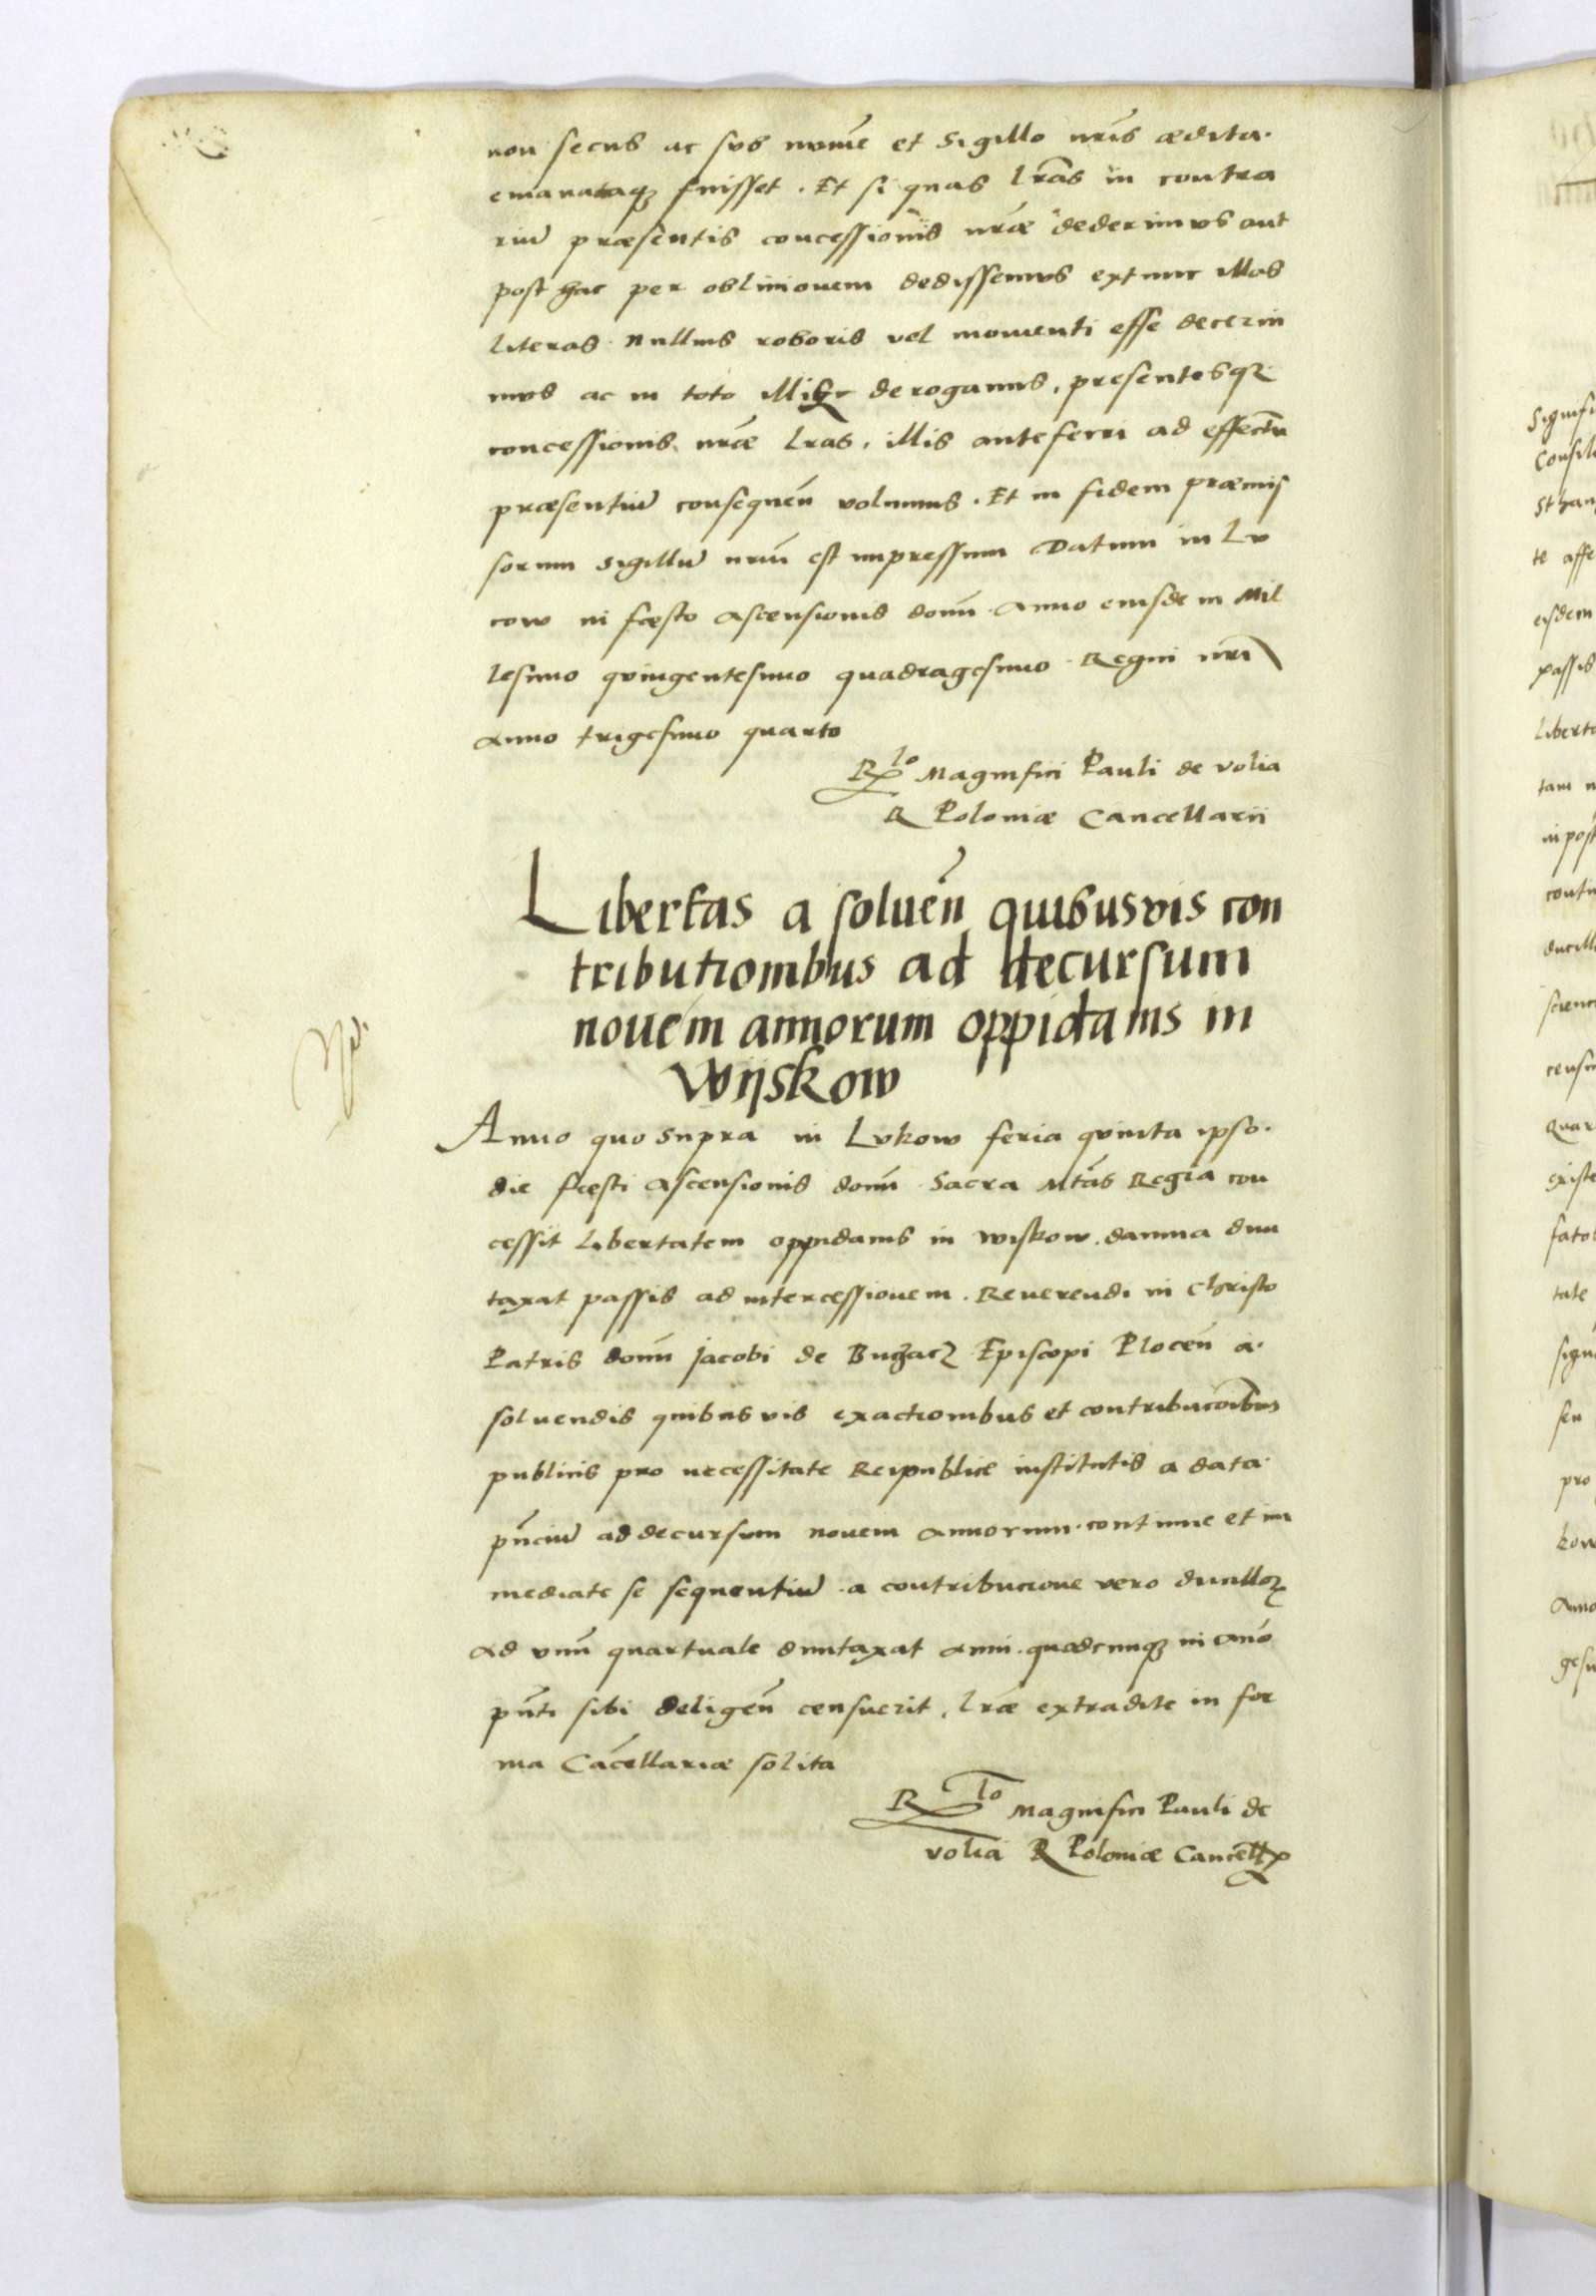 non secus ac sub nomīe et Sigillo nrīs ædita.
emanataq₃ fuisset. Et si quas lrās in contra
riū præsentis concessionis nrǣ dederimus aut
post hac per oblivionem dedissemus extunc illas
literas nullius roboris vel momenti esse decerni
mus ac in toto derogamus, presentesq₃
concessionis nrǣ lras, illis anteferri ad effectū
præsentiū consequēn volumus. Et in fidem præmis
sorum Sigillū nrūm est impressum Datum in Lu
cow in fęsto Ascensionis domī Anno eiusdem Mil
lesimo quingentesimo quadragesimo Regni nrī
Anno trigesimo quarto
R^lo Magnifici Pauli de volia
R Poloniæ Cancellarii
Libertas a soluēn quibusvis con
tributionibus ad decursum
nouem annorum oppidanis in
Wijskow
Anno quo supra in Lukow feria quinta ipso.
die fęsti Ascensionis domī Sacra Mtās Regia con
cessit libertatem oppidanis in Wiskow. damna dun
taxat passis ad intercessionem. Reuerendi in Christo
Patris domī Jacobi de Buczacz Episcopi Plocēn a.
soluendis quibus vis exactionibus et contribucōibus
publicis pro necessitate Reipublice institutis a data.
pn̄ciū ad decursum nouem annorum. continue et im
mediate se sequentiū. a contribucione vero ducillorꝝ
ad vnū quartuale duntaxat anni. quodcunq₃ in anō
pn̄ti sibi deligēn censuerit, lrǣ extradite in for
ma Cācellariæ solita
R^lo Magnifici Pauli de
volia R Poloniæ Cancell